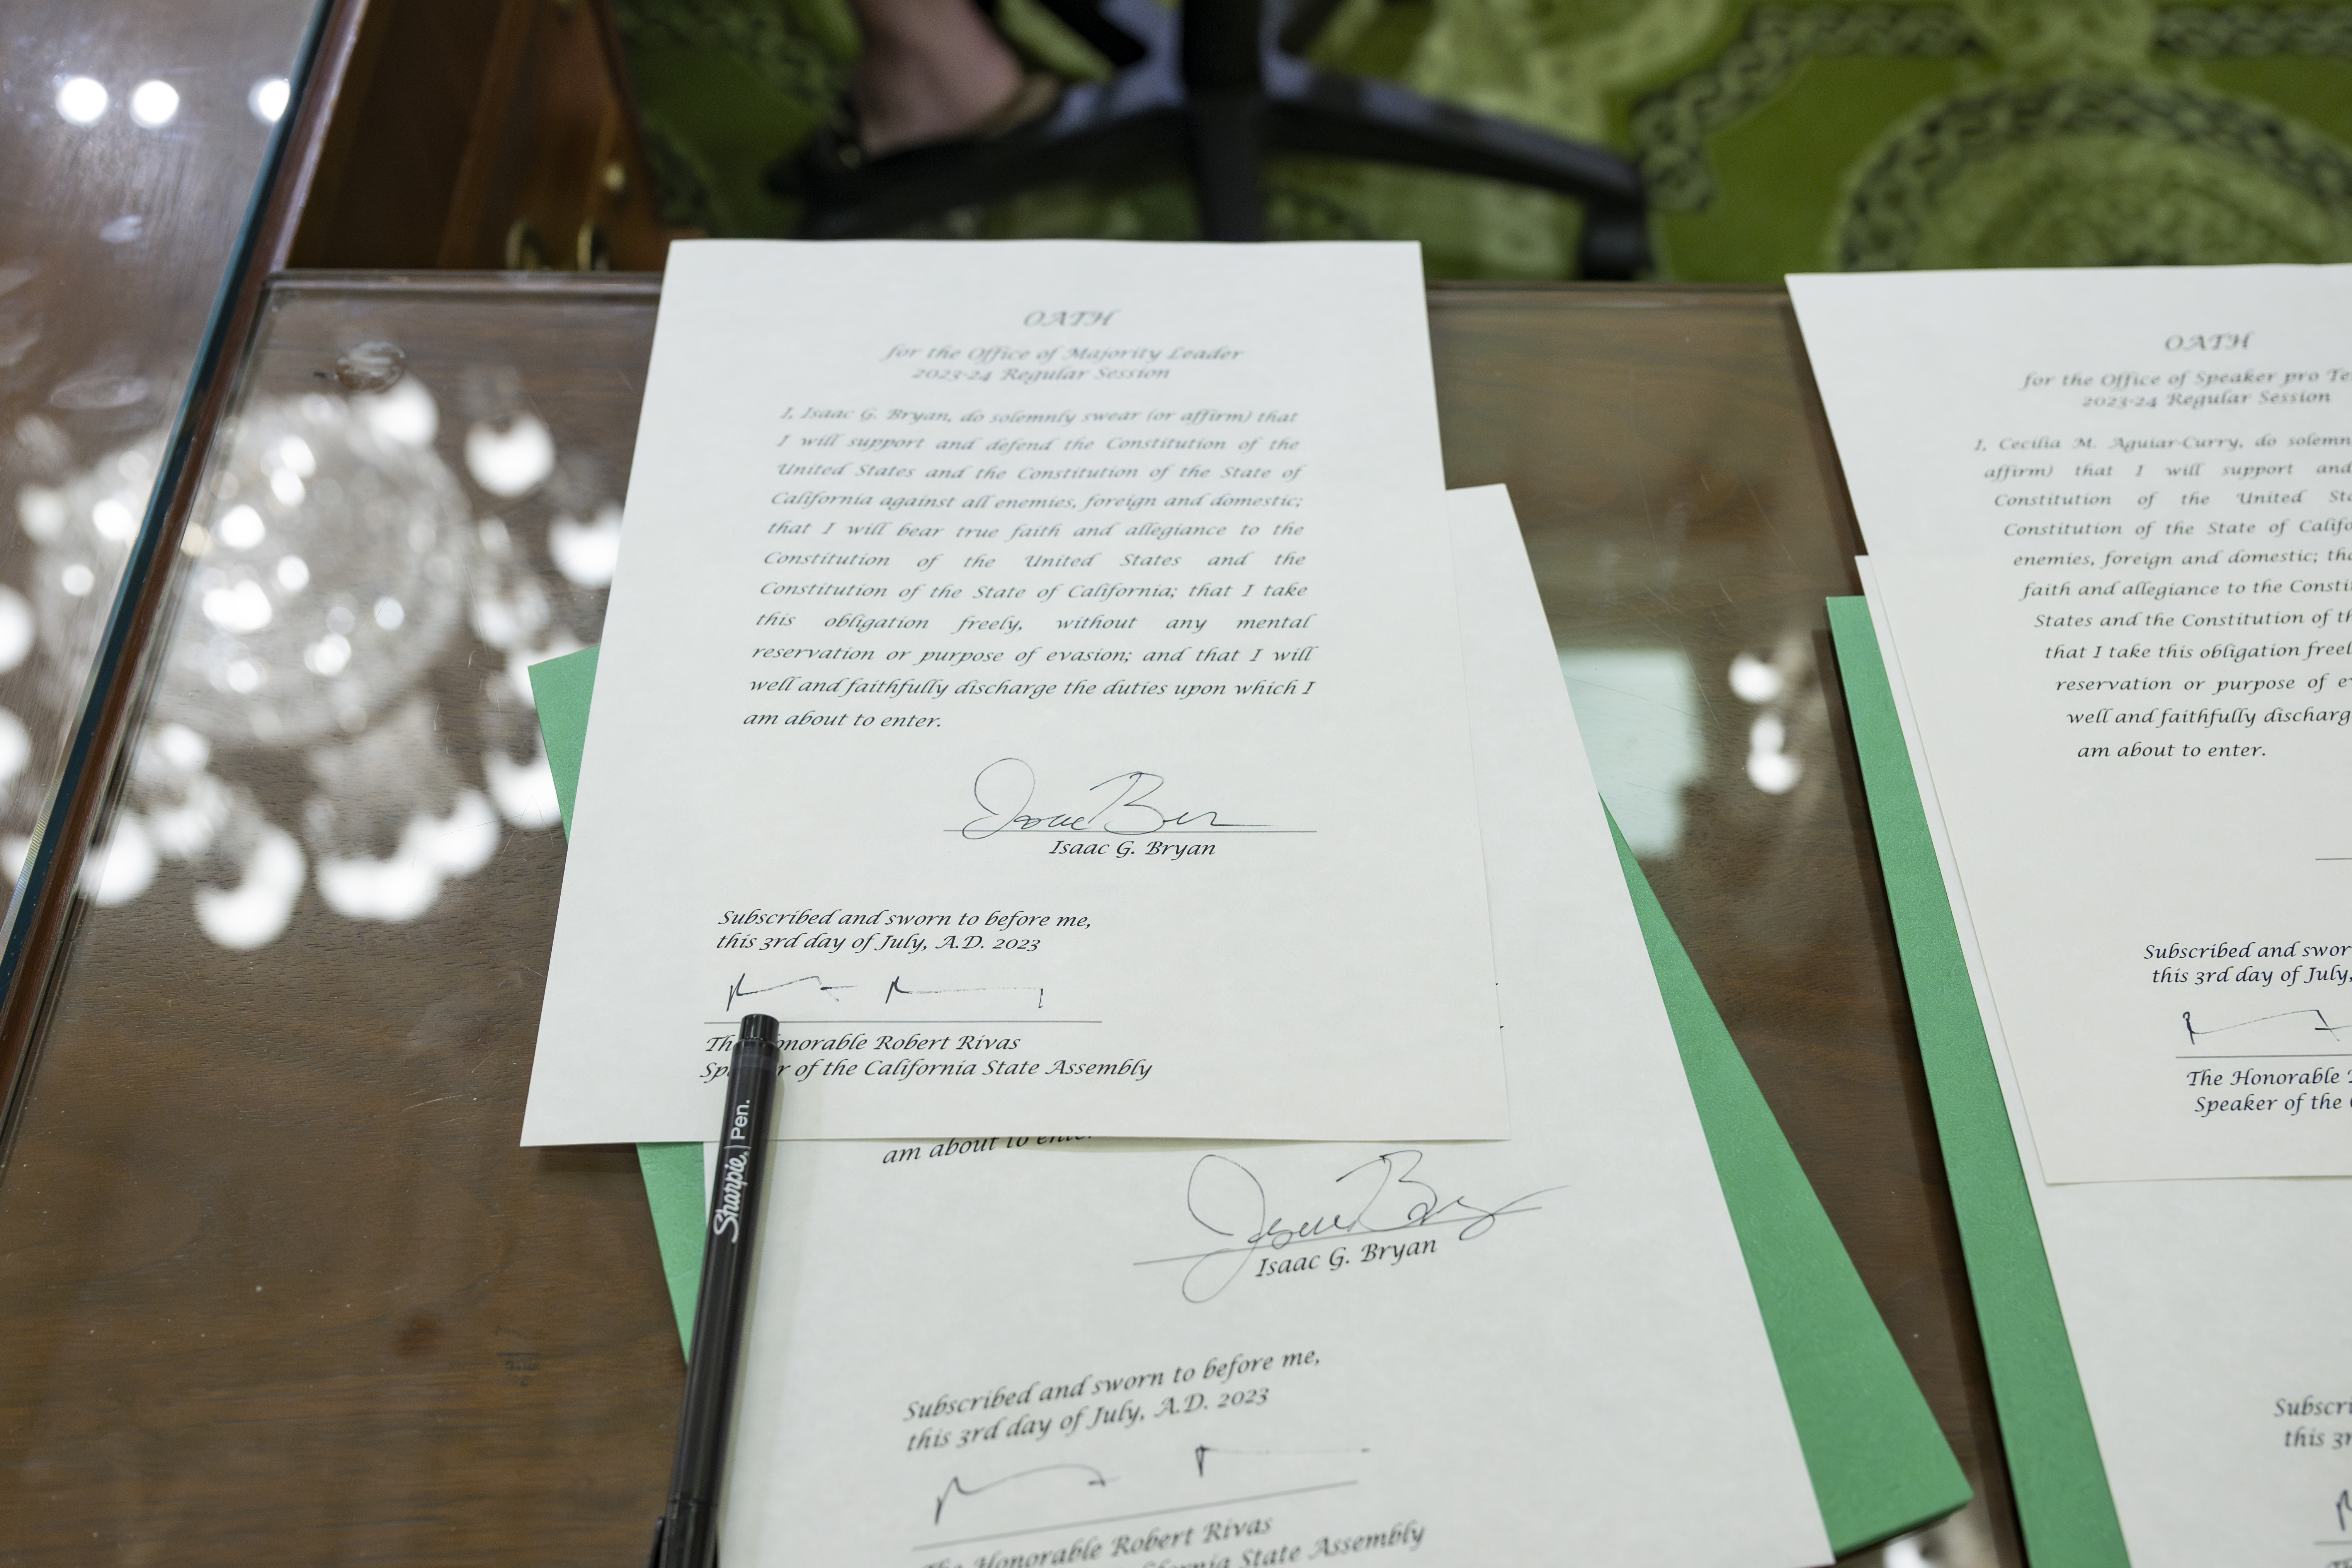 OATH
for the Office of Majority Leader
2023-24 Regular Session
I, Isaac G. Bryan, do solemnly swear (or affirm) that
I will support and defend the Constitution of the
United States and the Constitution of the State of
California against all enemies, foreign and domestic;
that I will bear true faith and allegiance to the
Constitution of the United States and the
Constitution of the State of California; that I take
this obligation freely, without any mental
reservation or purpose of evasion; and that I will
well and faithfully discharge the duties upon which I
am about to enter.
Isaac G. Bryan
Subscribed and sworn to before me,
this 3rd day of July, A.D. 2023
Honorable Robert Rivas
of the California State Assembly
Sharpie. Pen.
am about to
Isaac G. Bryan
Subscribed and sworn to before me,
this 3rd day of July, A.D. 2023
Honorable Robert Rivas
State Assembly
OATH
for the Office of Speaker pro
2023-24 Regular Session
I, Cecilia M. Aguiar-Curry, do
affirm) that I will support and
Constitution of the United
Constitution of the State of
enemies, foreign and domestic;
faith and allegiance to the
States and the Constitution of
that I take this obligation
reservation or purpose of
well and faithfully
am about to enter.
Subscribed and
this 3rd day of July,
The Honorable
Speaker of the
this